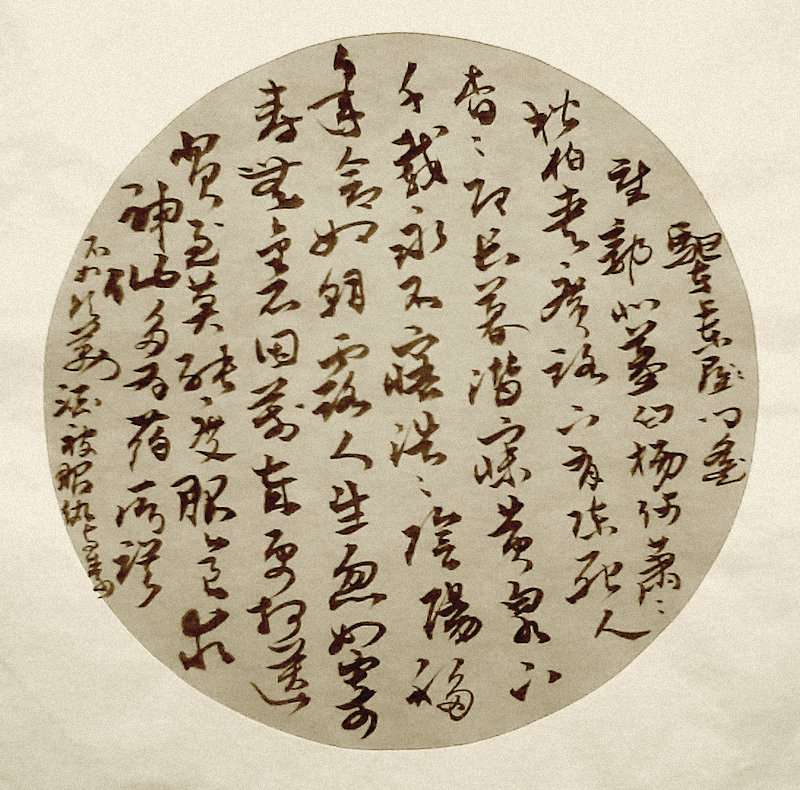 驅車上東門遙
望郭北墓白楊何蕭〻
松柏夾廣路下有陳死人
杳〻即長暮潛寐黃泉下
千載永不寤浩〻陰陽移
年命如朝露人生忽如寄
壽無金石固萬歲更相送
賢聖莫能度服食求
神仙多為藥所誤
不如飲美酒被服紈與素